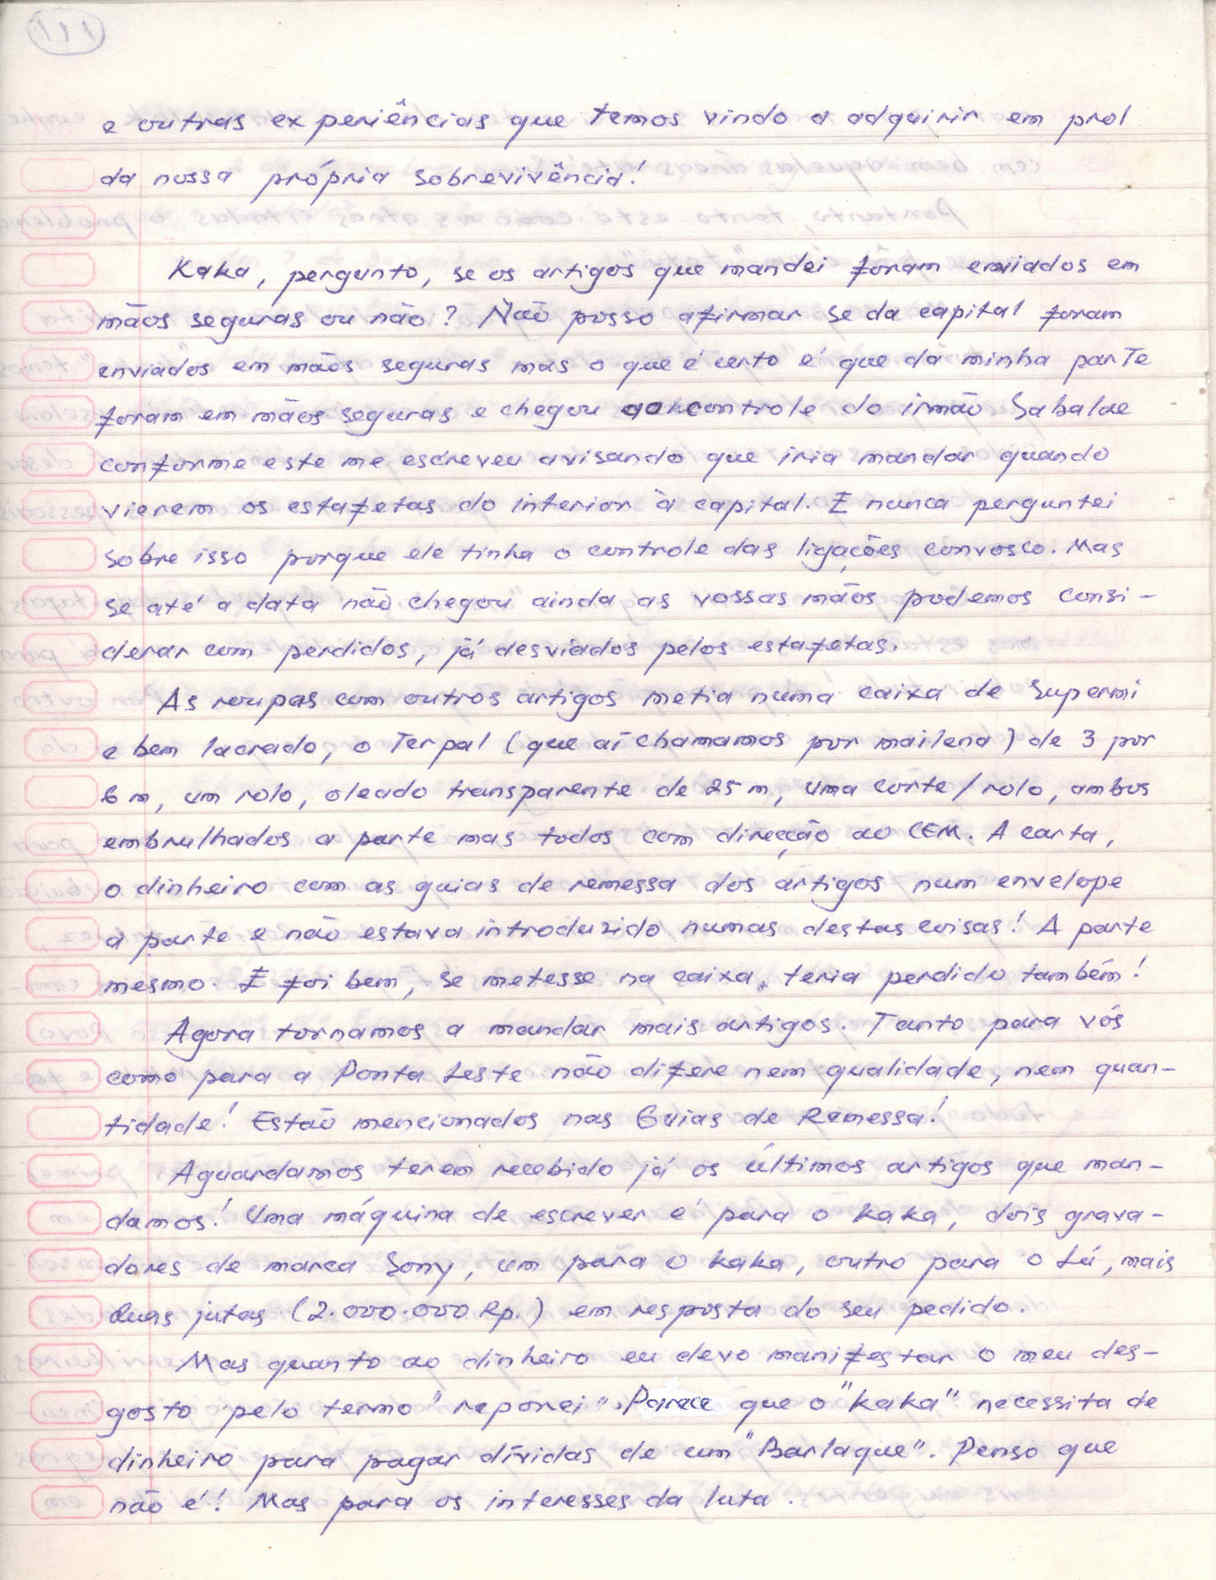 e outras experiências que temos vindo a adquirir em prol
da nossa própria sobrevivência!
Kaka, pergunto, se os artigos que mandei foram enviados em
mãos seguras ou não? Não posso afirmar se da capital foram
enviados em mãos seguras mas o que é certo é que da minha parte
foram em mãos seguras e chegou ao controle do irmão Sabalae
conforme este me escreveu avisando que iria mandar quando
vierem os estafetas do interior à capital. E nunca perguntei
sobre isso porque ele tinha o controle das ligações convosco. Mas
se até a data não chegou ainda as vossas mãos podemos consi-
derar com perdidos, já desviados pelos estafetas.
As roupas com outros artigos metia numa caixa de Supermi
e bem lacrado, o Terpal (que aí chamamos por mailena) de 3 por
6 m, um rolo, oleado transparente de 25 m, uma corte/rolo, ambos
embrulhados a parte mas todos com direcção ao CEM. A carta,
o dinheiro com as guias de remessa dos artigos num envelope
a parte e não estava introduzido numas destas coisas! A parte
mesmo. E foi bem, se metesse na caixa, teria perdido também!
Agora tornamos a mandar mais artigos. Tanto para vós
como para a Ponta Leste não difere nem qualidade, nem quan-
tidade! Estão mencionados nas Guias de Remessa!
Aguardamos terem recebido já os últimos artigos que man-
damos! Uma máquina de escrever é para o kaka, dois grava-
dores de marca Sony, um para o kaka, outro para o Lú, mais
duas jutas (2.000.000 Rp.) em resposta do seu pedido.
Mas quanto ao dinheiro eu devo manifestar o meu des-
gosto pelo termo "reporei". Parece que o "kaka" necessita de
dinheiro para pagar dívidas de um "Barlaque". Penso que
não é! Mas para os interesses da luta.